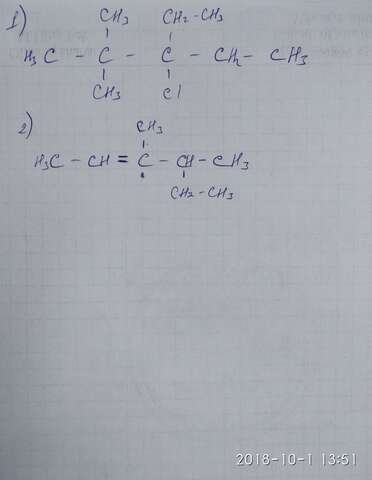 1)
CH₃ CH₂-CH₃
H₃C - C - C - CH₂ - CH₃
CH₃ Cl
2)
CH₃
H₃C - CH = C - CH - CH₃
CH₂-CH₃
2018-10-1 13:51